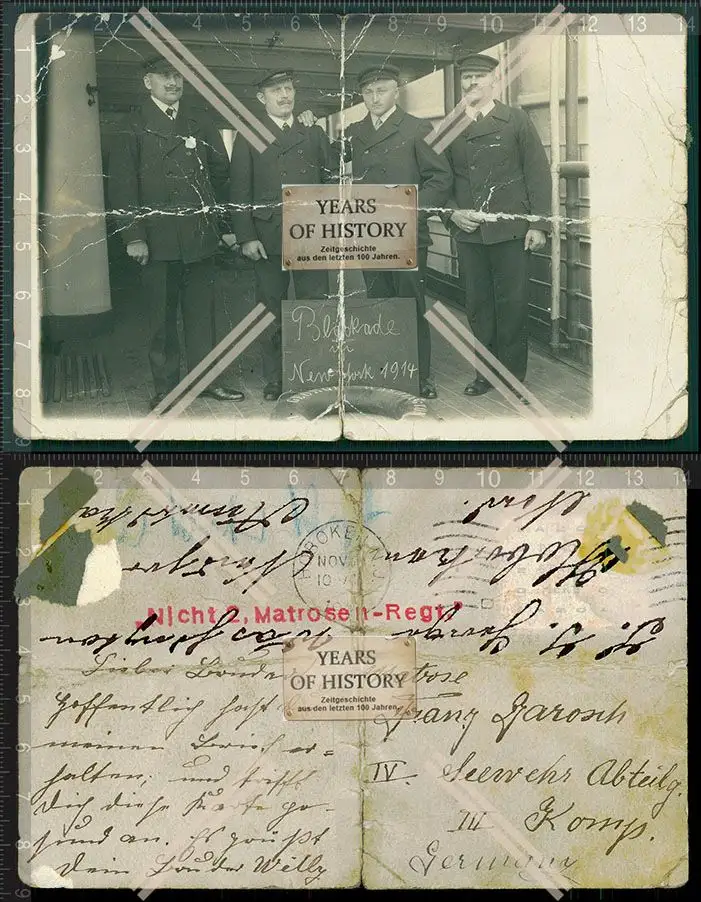 YEARS
OF HISTORY
Zeitgeschichte
aus den letzten 100 Jahren.
Blockade
in
New York 1914
HOBOKEN
NOV
10
„Nicht 2, Matrosen-Regt."
YEARS
OF HISTORY
Zeitgeschichte
aus den letzten 100 Jahren.
Lieber Bruder
Hoffentlich hast
meinen Brief er=
halten, und trifft
Dich diese Karte ge-
sund an. Es grüßt
Dein Bruder Willy
Matrose
Franz Jarosch
IV. Seewehr Abteilg.
III Komp.
Germany